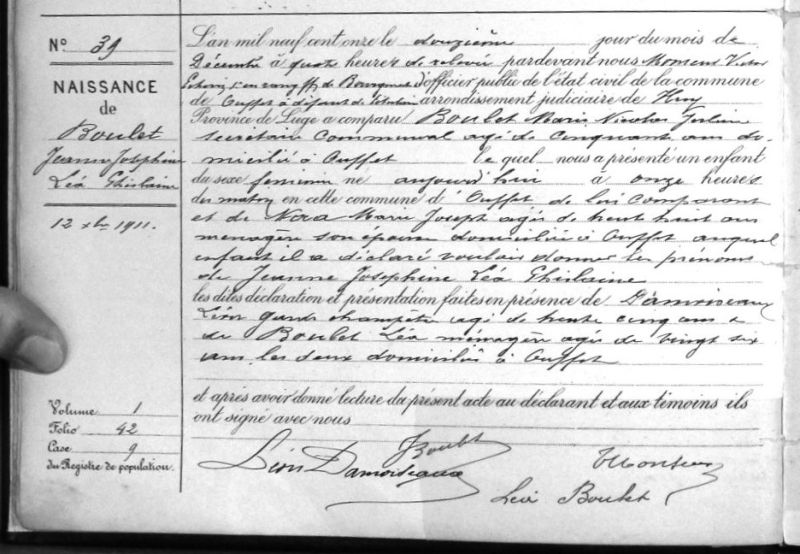 Nº 39
NAISSANCE
de
Boulet
Jeanne Josephine
Léa Ghislaine
12 xbre 1911.
Volume 1
Folio 42
Case 9
du Registre de population.
L'an mil neuf cent onze le douzième jour du mois de
Décembre à quatre heures de relevée pardevant nous Monseur Victor
Echevin 1er en rang ff de Bourgmestre d'officier public de l'état civil de la commune
de Ouffet à défaut de titulaire arrondissement judiciaire de Huy
Province de Liège a comparu Boulet Marie Nicolas
secrétaire communal agé de cinquante ans do-
micilié à Ouffet lequel nous a présenté un enfant
du sexe feminin né aujourd'hui à onze heures
du matin en cette commune d'Ouffet de lui Comparant
et de Marie Joseph agée de trente huit ans
menagère son épouse domiciliée à Ouffet auquel
enfant il a déclaré vouloir donner les prénoms
de Jeanne Josephine Léa Ghislaine
les dites déclaration et présentation faites en présence de Damoiseaux
Léon garde champêtre agé de trente cinq ans &
de Boulet Léa ménagère agée de vingt six
ans les deux domiciliés à Ouffet
et après avoir donné lecture du présent acte au déclarant et aux témoins ils
ont signé avec nous
Boulet
Léon Damoiseaux
VMonseur
Léa Boulet